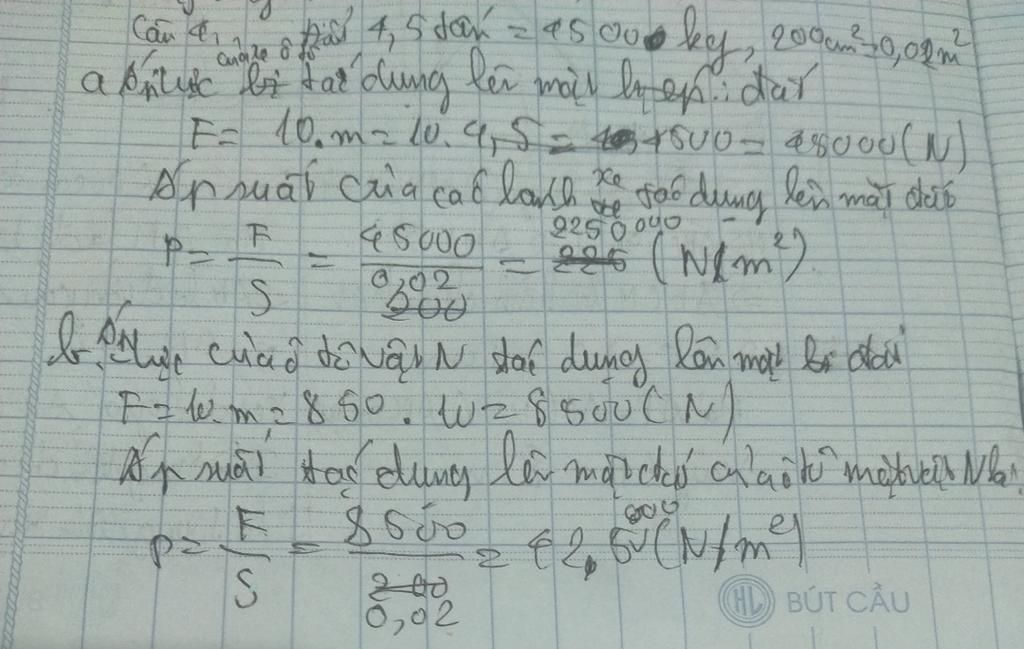 Câu 4, Đổi 4,5 tấn = 4500 kg, 200cm² = 0,02m²
a Áp lực của xe ô tô tác dụng lên mặt đất
F = 10.m = 10. 4,5 = 4500 = 45000 (N)
Áp suất của các bánh xe tác dụng lên mặt đất
P = F/S = 45000/0,02 = 2250000 (N/m²).
b. Áp lực của ô tô vật N tác dụng lên mặt đất
F = 10.m = 850 . 10 = 8500 (N)
Áp suất tác dụng lên mặt của ô tô
P = F/S = 8500/0,02 = 42 (N/m²)
HL BÚT CẦU